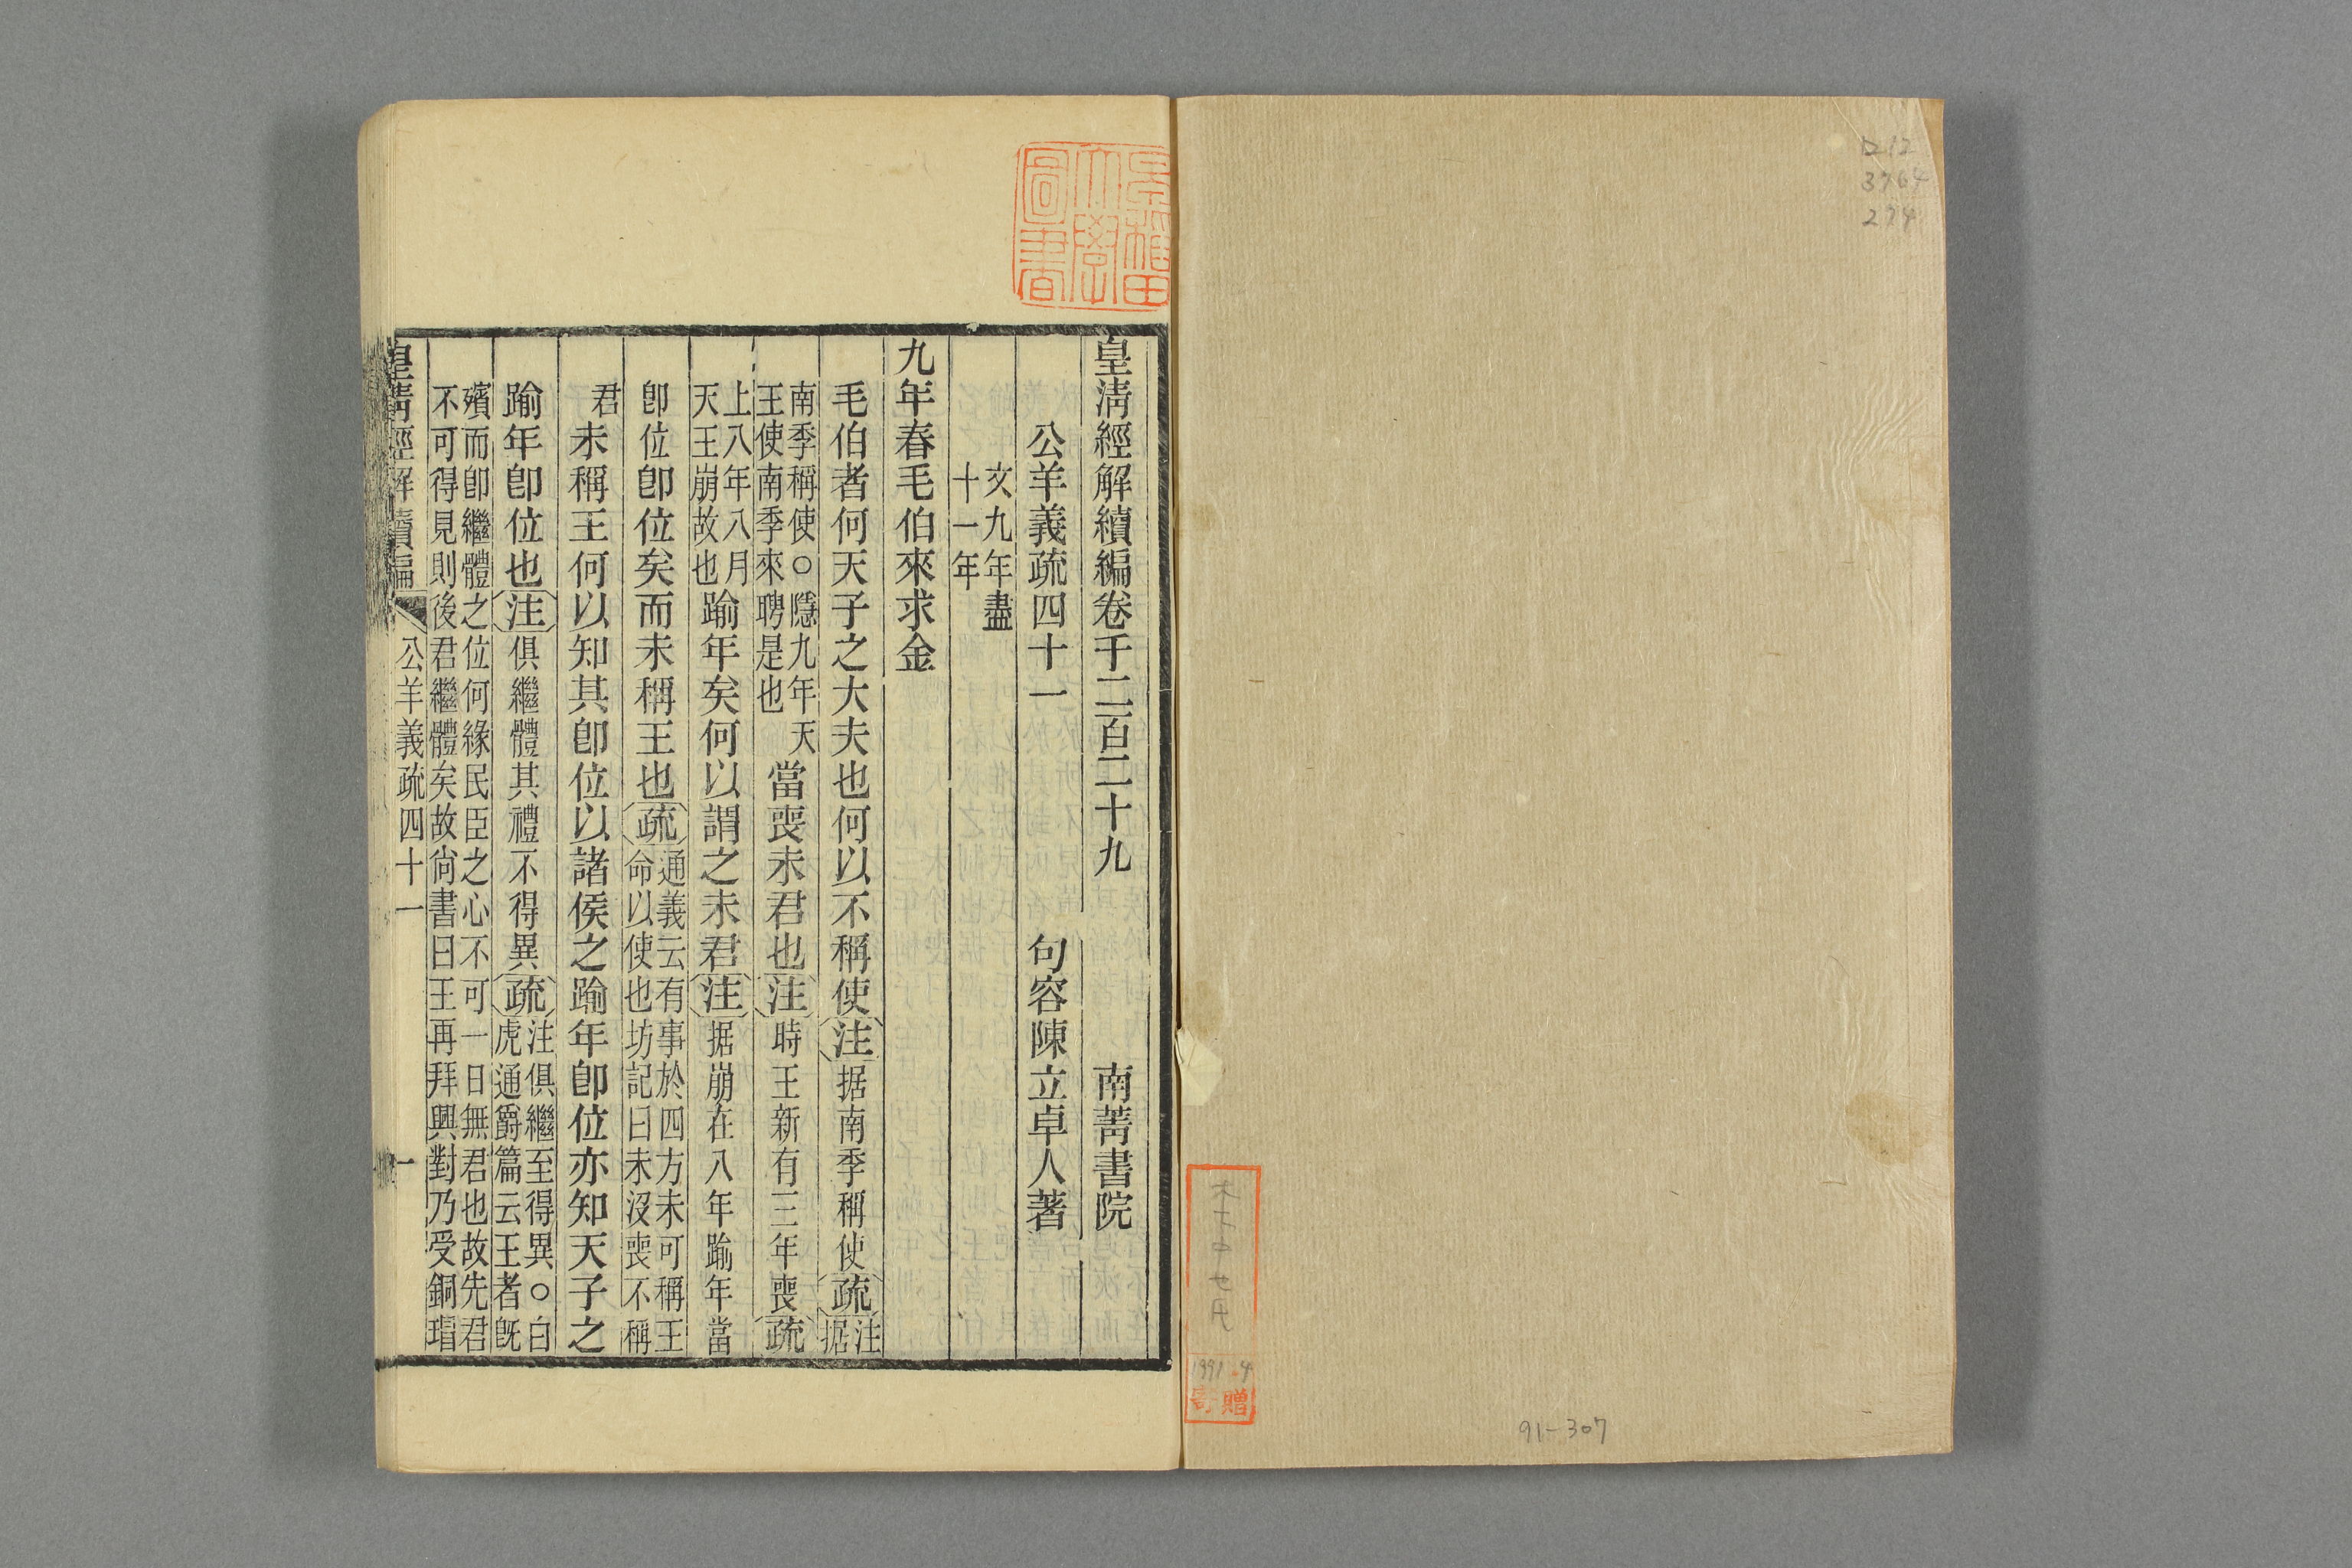 D12
3764
274
91-307
1991.4
寄贈
早稲田大學圖書
皇清經解續編卷千二百二十九 南菁書院
公羊義疏四十一 句容陳立卓人著
文九年盡
十一年
九年春毛伯來求金
毛伯者何天子之大夫也何以不稱使注据南季稱使疏注据
南季稱使○隱九年天
王使南季來聘是也當喪未君也注時王新有三年喪疏
上八年八月
天王崩故也踰年矣何以謂之未君注据崩在八年踰年當
卽位卽位矣而未稱王也疏通義云有事於四方未可稱王
命以使也坊記曰未沒喪不稱
君未稱王何以知其卽位以諸侯之踰年卽位亦知天子之
踰年卽位也注俱繼體其禮不得異疏注俱繼至得異○白
虎通爵篇云王者旣
殯而卽繼體之位何緣民臣之心不可一日無君也故先君
不可得見則後君繼體矣故尙書曰王再拜興對乃受銅瑁
皇清經解續編 公羊義疏四十一 一